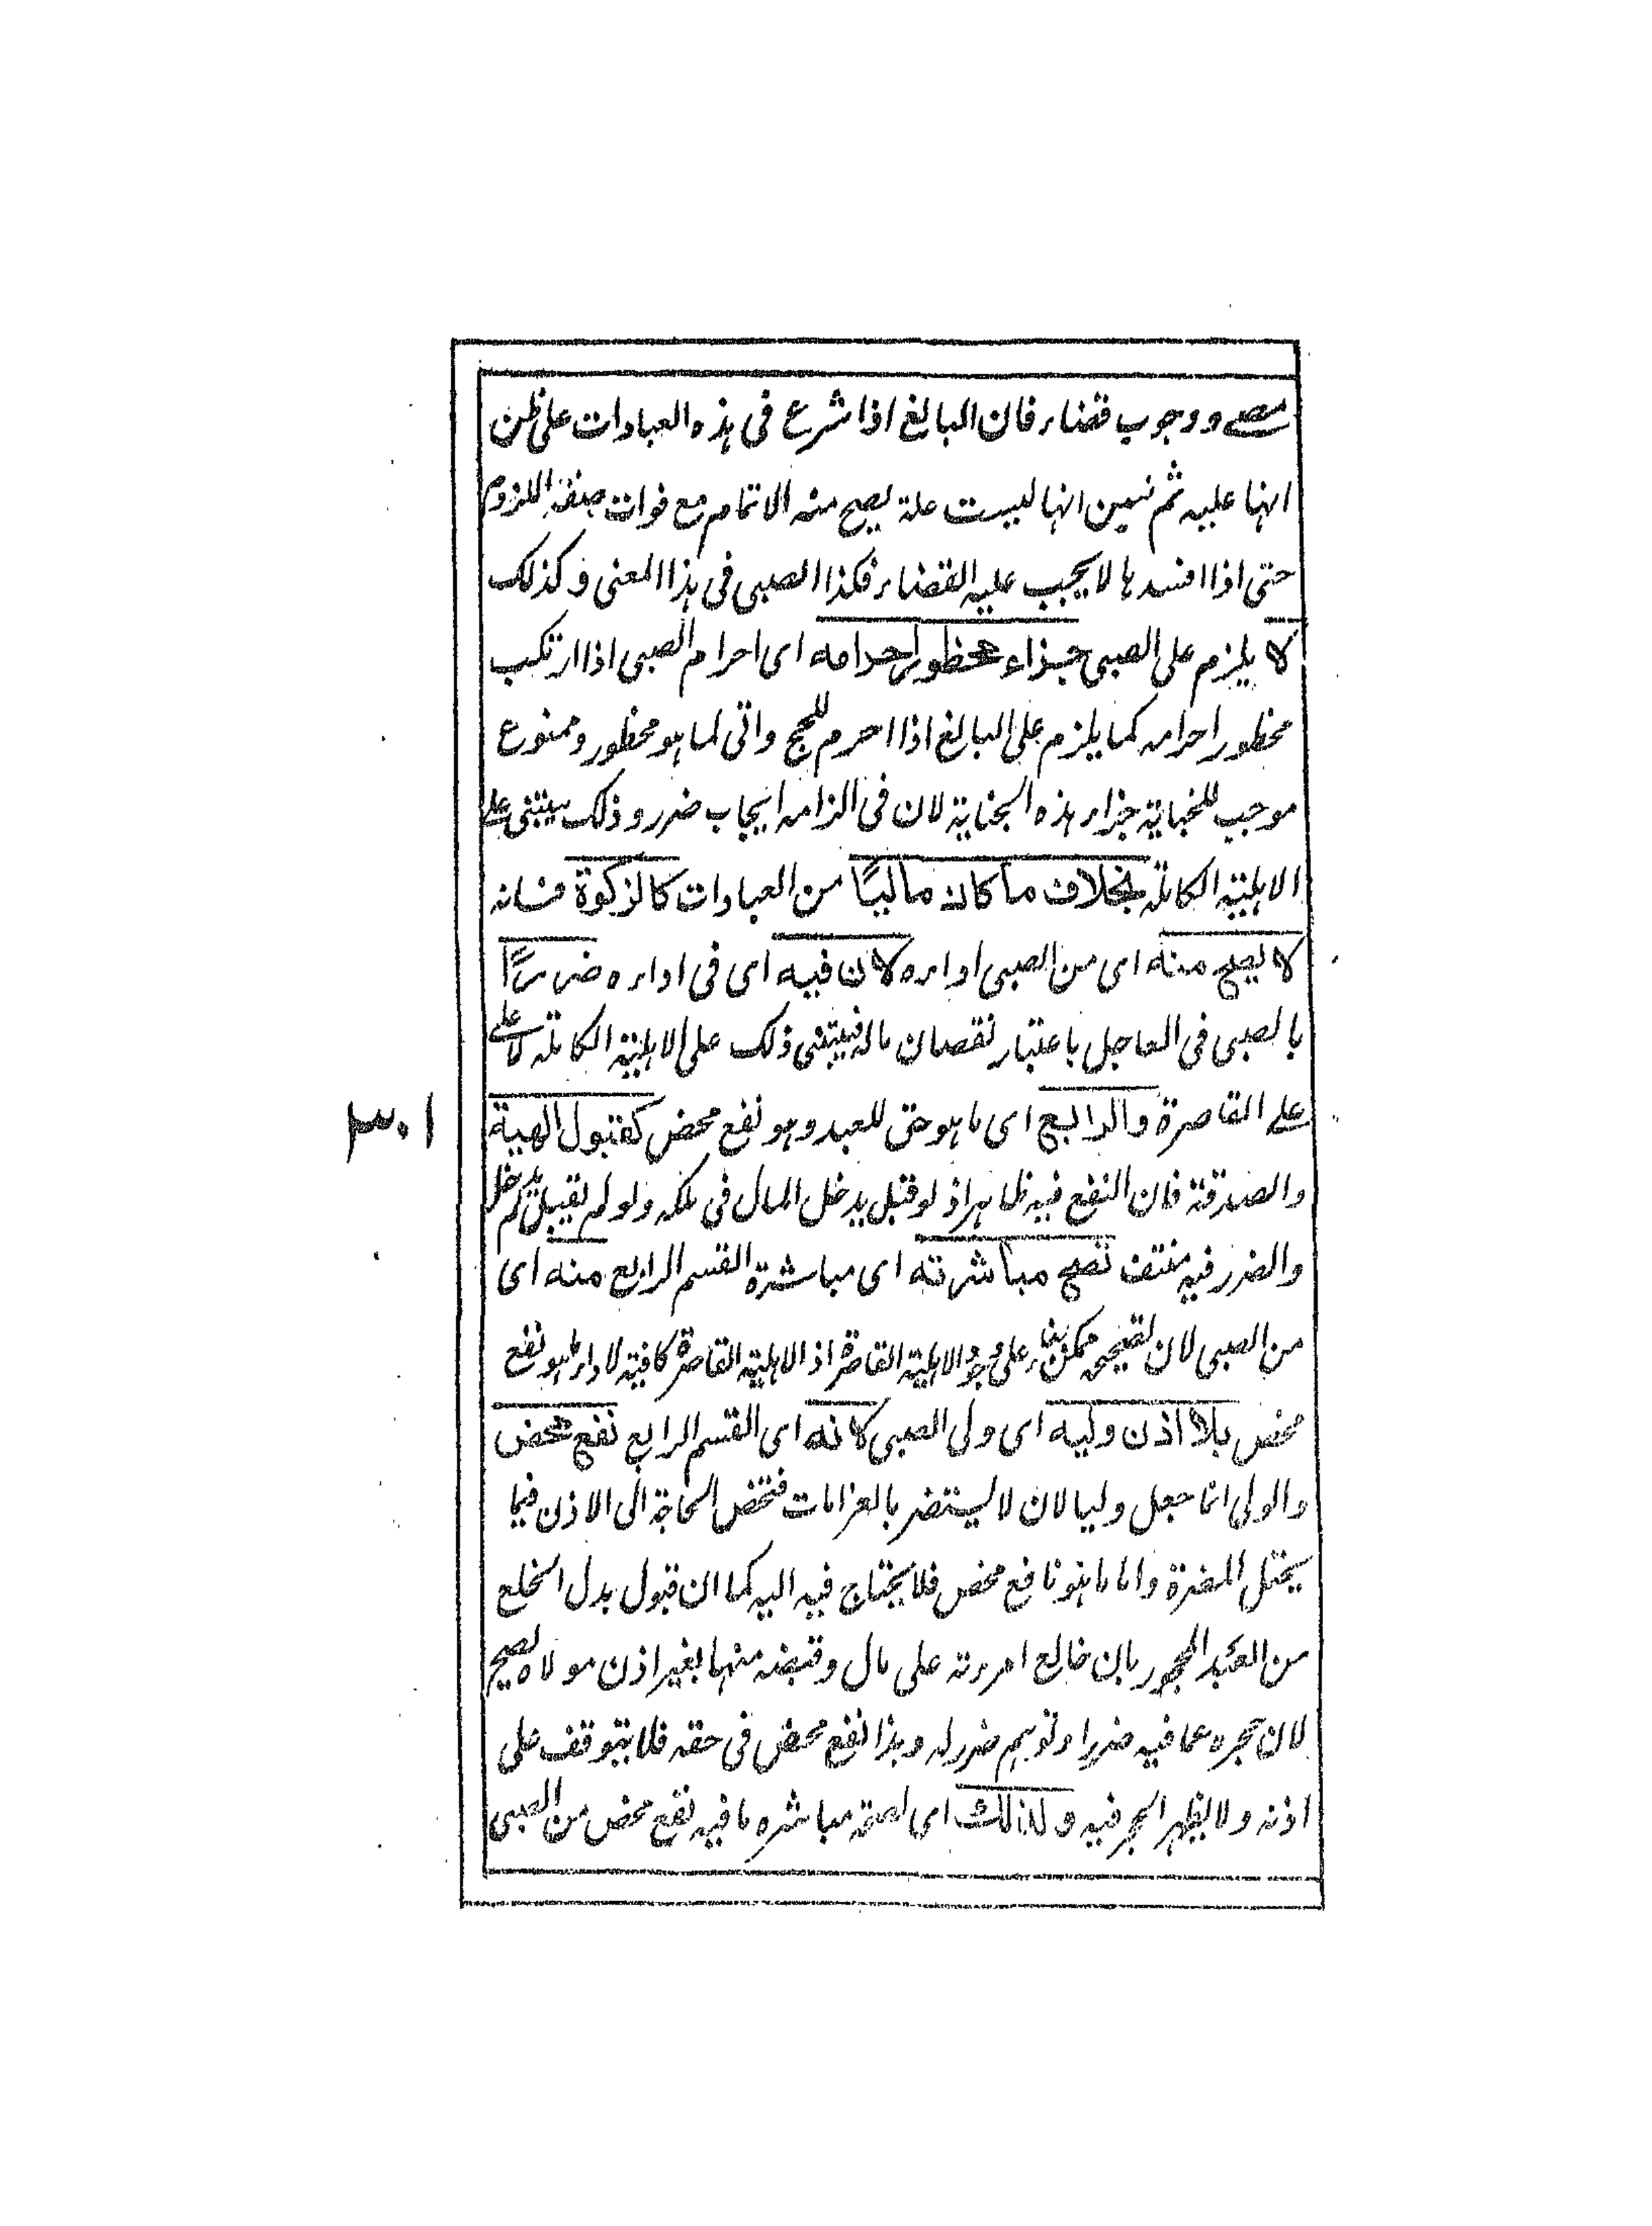 مضى ووجوب قضاء فان البالغ اذا شرع فى هذه العبادات على ظن
انها عليه ثم تبين انها ليست علة يصح منه الاتمام مع فوات صفة اللزوم
حتى اذا افسدها لا يجب عليه القضاء فكذا الصبى فى هذا المعنى وكذلك
لا يلزم على الصبى جزاء محظور احرامه اى احرام الصبى اذا ارتكب
محظور احرامه كما يلزم على البالغ اذا احرم للحج واتى لما هو محظور وممنوع
موجب للجناية جزاء هذه الجناية لان فى الزامه ايجاب ضرر وذلك يبتنى على
الاهلية الكاملة بخلاف ما كان ماليًا من العبادات كالزكوة فانه
لا يصح منه اى من الصبى اداءه لان فيه اى فى اداءه ضررًا
بالصبى فى العاجل باعتبار نقصان ماله فيبتنى ذلك على الاهلية الكاملة لا على
على القاصرة والرابع اى ما هو حق للعبد وهو نفع محض كقبول الهبة
والصدقة فان النفع فيه ظاهر اذ لو قبل يدخل المال فى ملكه ولو لم يقبل لم يدخل
والضرر فيه منتف تصح مباشرته اى مباشرة القسم الرابع منه اى
من الصبى لان تصحيحه ممكن بناء على وجود الاهلية القاصرة اذ الاهلية القاصرة كافية لاداء ما هو نفع
محض بلا اذن وليه اى ولى الصبى لانه اى القسم الرابع نفع محض
والولى انما جعل وليا لان لا يستضر بالغرامات فتحض الحاجة الى الاذن فيما
يحتمل المضرة واما ما هو نافع محض فلا يحتاج فيه اليه كما ان قبول بدل الخلع
من العبد المحجور بان خالع امرءته على مال وقبضه منها بغير اذن مولاه يصح
لان حجره عما فيه ضرر او توهم ضرر له وهذا نفع محض فى حقه فلا يتوقف على
اذنه ولا يظهر الحجر فيه ولذلك اى لصحة مباشره ما فيه نفع محض من الصبى
٣٠١